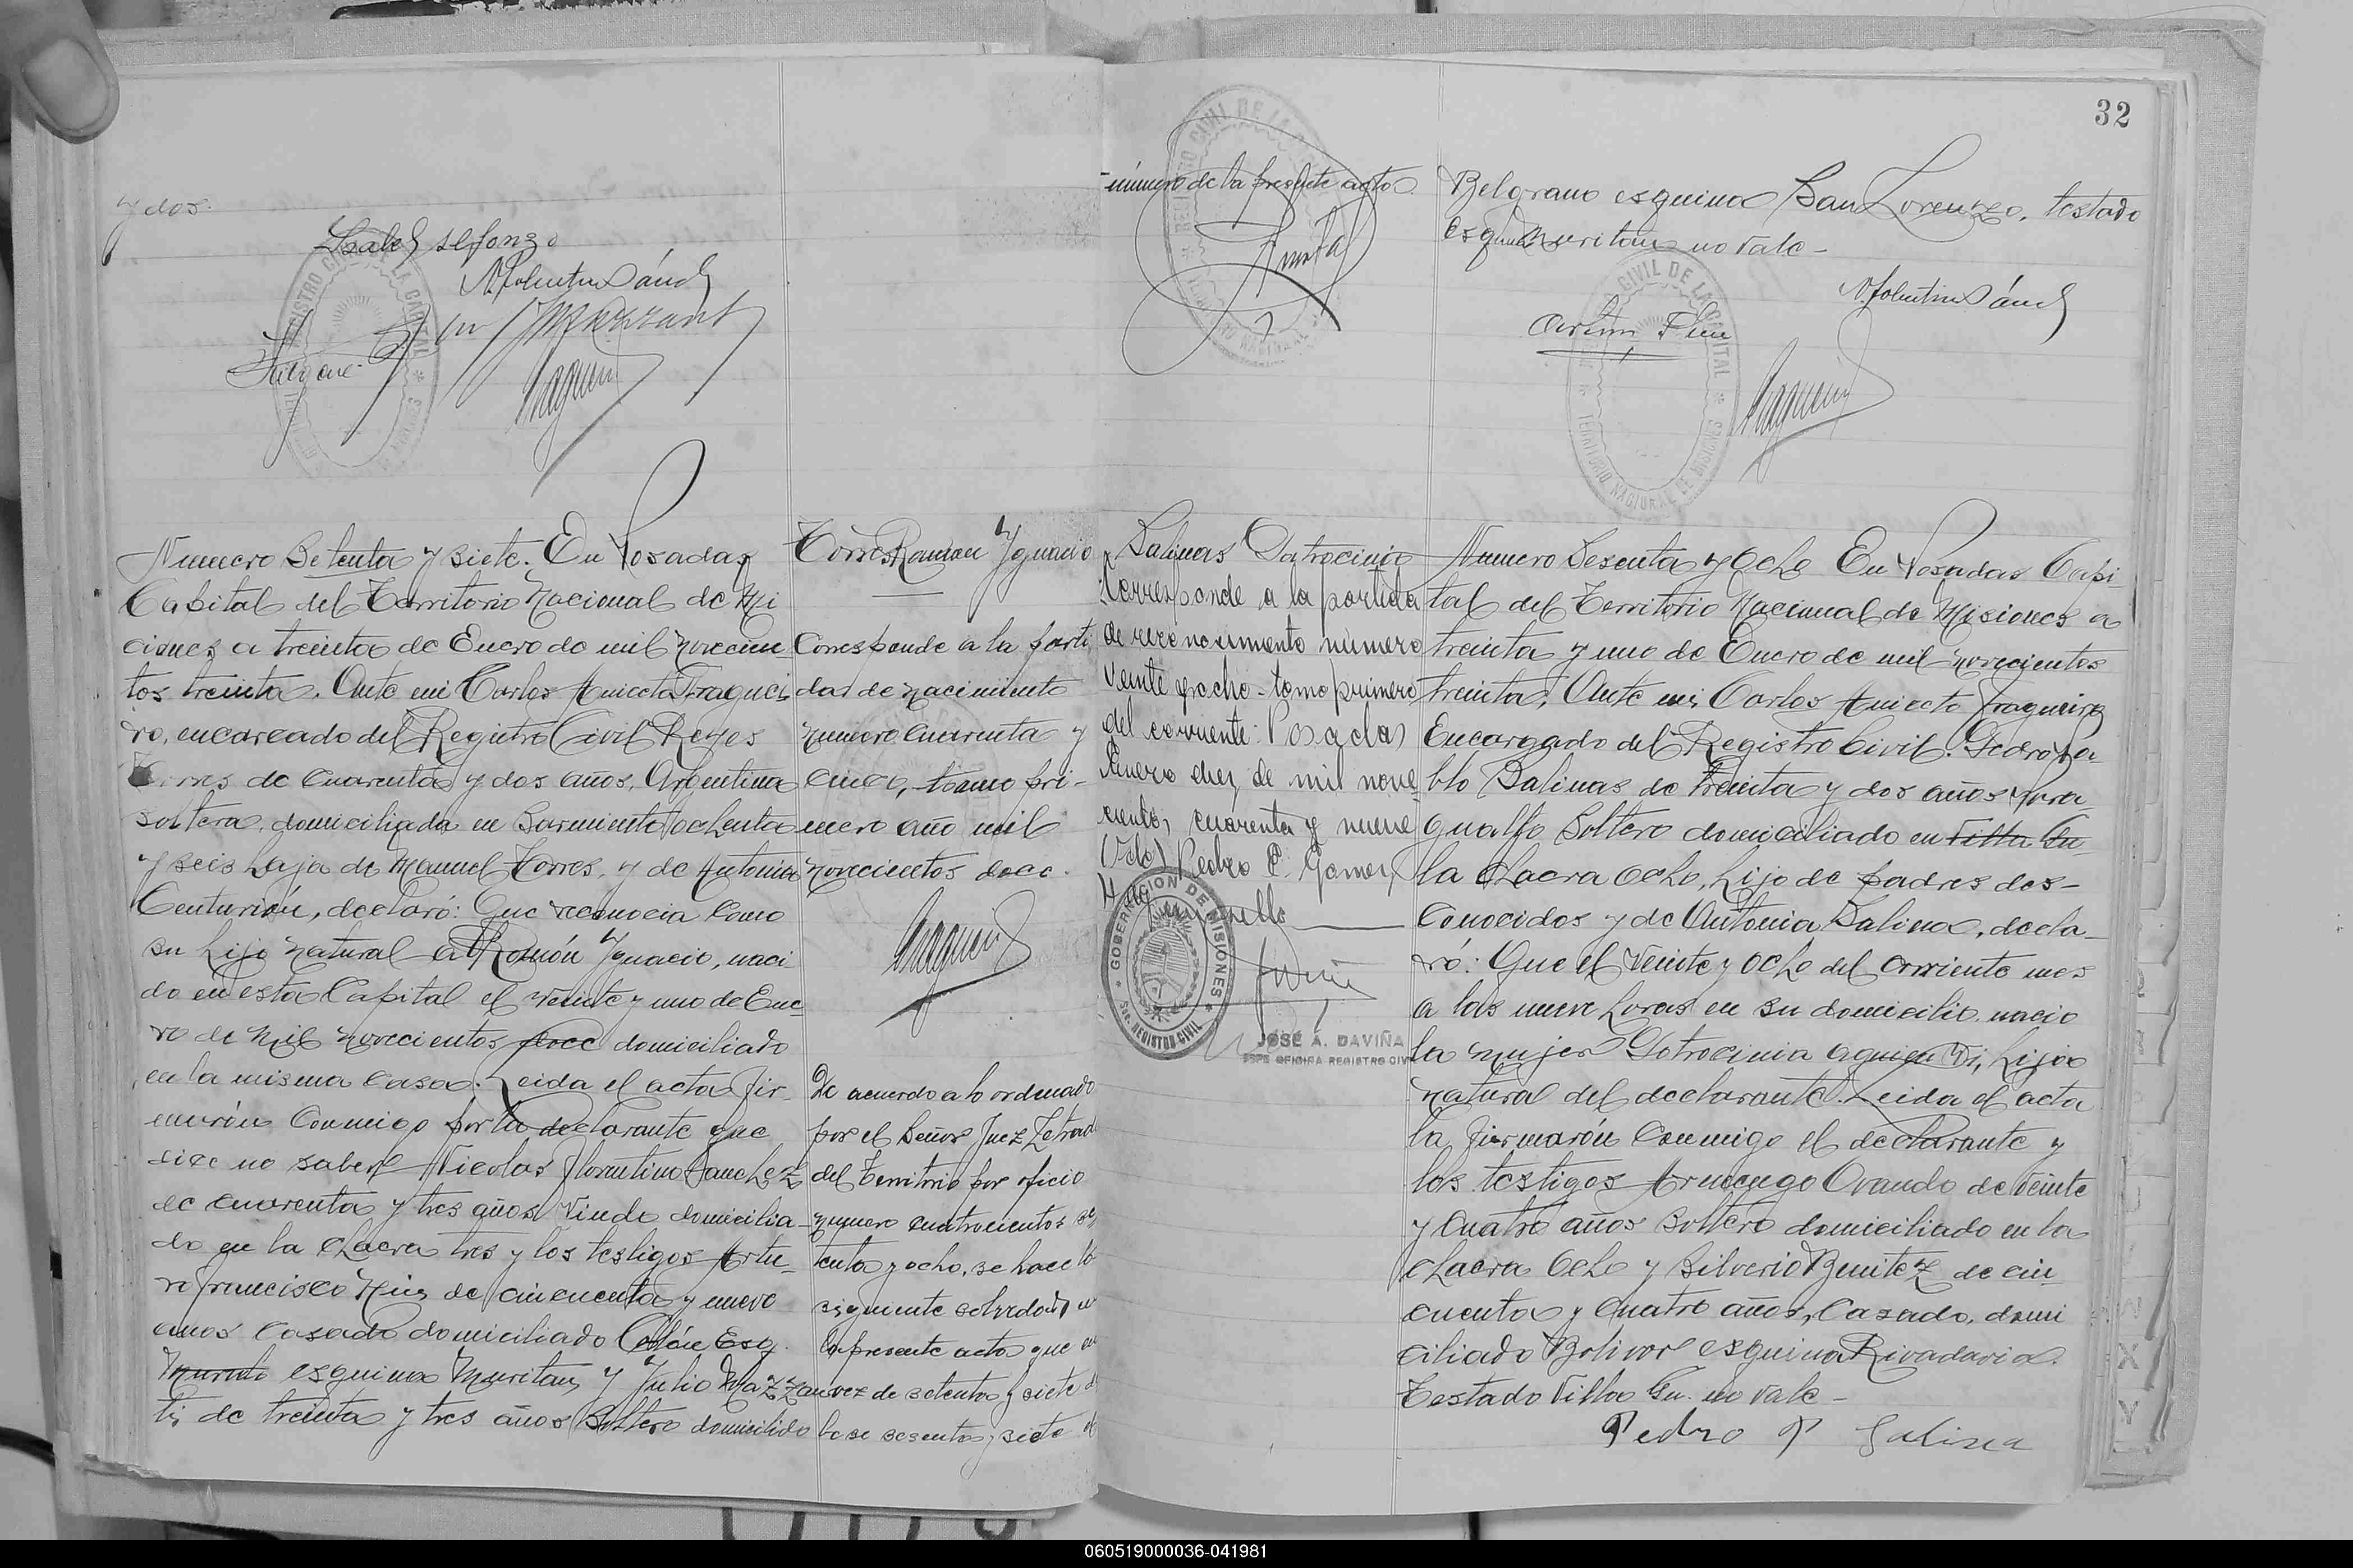 y dos.
Isabel Alfonzo
N. Florentino Sánch
Numero Setenta y siete. En Posadas
Capital del Territorio Nacional de Mi
ciones a treinta de Enero de mil novecien
tos treinta. Ante mi Carlos Aniceto Fraguei
ro, encarcado del Registro Civil Reyes
Torres de Cuarenta y dos años, Argentina
soltera, domiciliada en Sarmiento ochenta
y seis hija de Manuel Torres, y de Antonia
Centurión, declaró: Que reconocia Como
su hijo natural a Ramón Ygnacio, naci
do en esta Capital el veinte y uno de Ene
ro de mil novecientos doce domiciliado
en la misma Casa. Leida el acta fir
marón Conmigo por la declarante que
dice no saber Nicolas Florentino Sanchez
de cuarenta y tres años Viudo domicilia
do en la Chacra tres y los testigos Artu
ro Francisco de cincuenta y nueve
años Casado domiciliado Colón Esq.
esquina y Julio Mazzan
ti de treinta y tres años Soltero domicilido
Torres Ramon Ygnacio
Corresponde a la parti
da de nacimiento
numero Cuarenta y
cinco, tomo pri-
mero año mil
novecientos doce.
De acuerdo a lo ordenado
por el Señor Juez Letrad
del Territorio por oficio
numero cuatrocientos se
tenta y ocho, se hace la
siguiente salvedad en
la presente acta que en
vez de setenta y siete d
be se sesenta y siete el
32
número de la presente acta
Belgrano esquina San Lorenzo, testado
esquina no vale-
N. Florentino Sánch
REGISTRO CIVIL DE LA CAPITAL
TERRITORIO NACIONAL DE MISIONES
Salinas Patrocinia
Corresponde a la partida
de reconocimiento número
veinte y ocho - tomo primero
del corriente: Posadas
Enero diez de mil nove
cientos cuarenta y nueve
(Fdo) Pedro C. Gomez
GOBERNACION DE MISIONES
REGISTRO CIVIL
JOSÉ A. DAVIÑA
JEFE OFICINA REGISTRO CIVIL
Numero Sesenta y Ocho En Posadas Capi
tal del Territorio Nacional de Misiones a
treinta y uno de Enero de mil novecientos
treinta, Ante mi, Carlos Aniceto Fragueiro
Encargado del Registro Civil. Pedro Pa-
blo Salinas de treinta y dos años Para
guallo Soltero domiciliado en Villa Gu
la Chacra Ocho, hijo de padres des-
Conocidos y de Antonia Salina, decla-
ró: Que el Veinte y Ocho del corriente mes
a las nueve horas en su domicilio, nacio
la mujer Patrocinia a quien vi, hija
natural del declarante. Leida el acta
la firmarón Conmigo el declarante y
los testigos Armengo Ovando de veinte
y Cuatro años soltero domiciliado en la
Chacra Ocho y Silverio Benitez de cin
cuenta y cuatro años, Casado, domi
ciliado Bolivar esquina Rivadavia.
Testado Villa Gu. no vale-
Pedro P Salina
X
Y
060519000036-041981